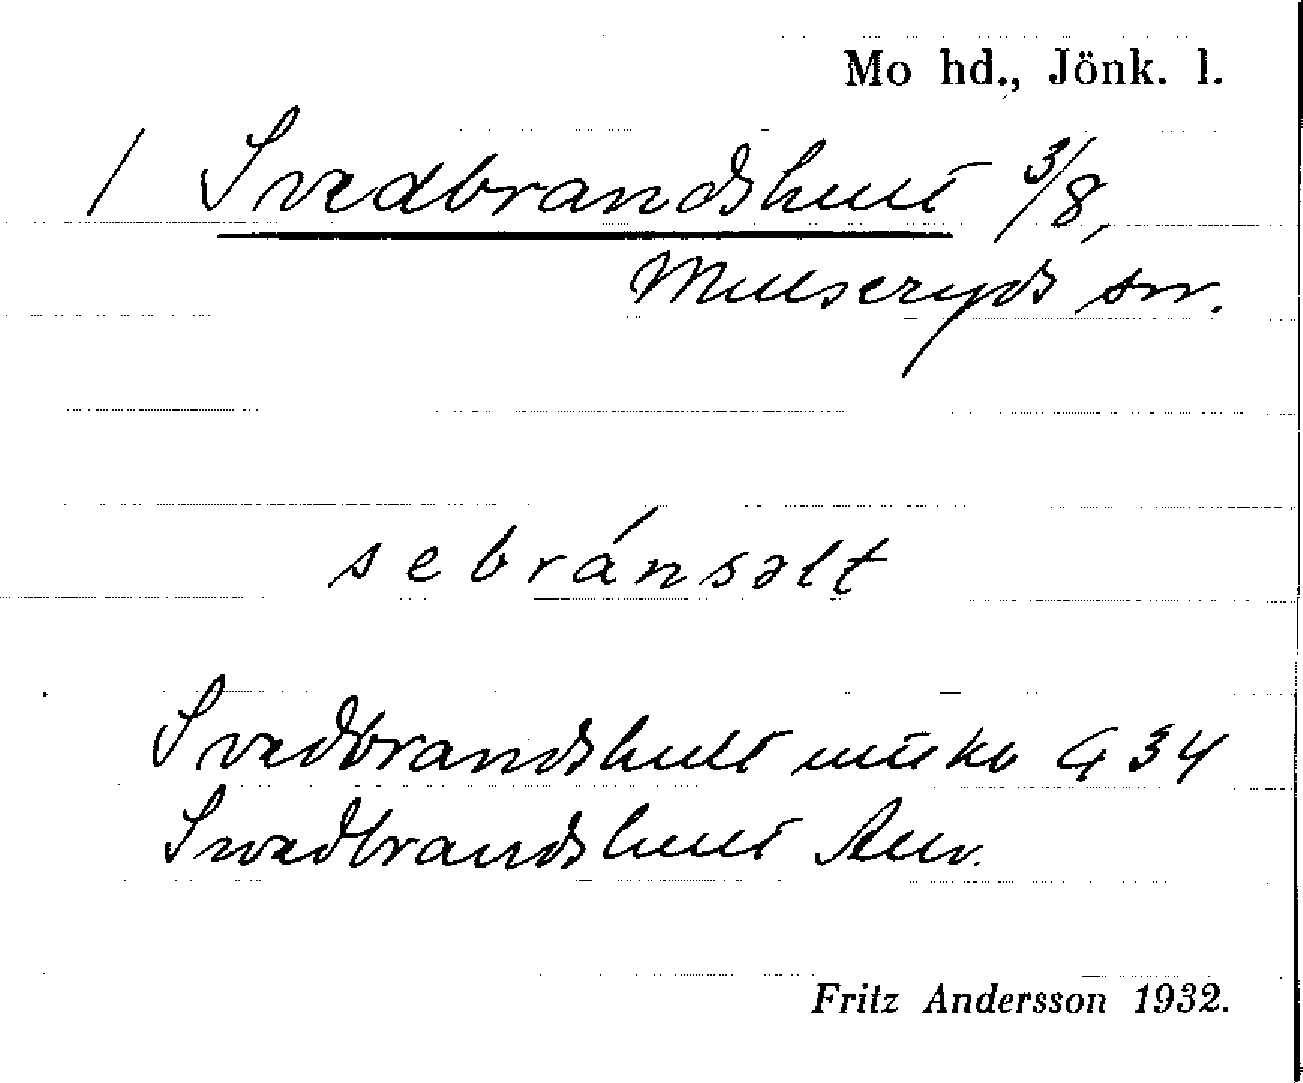 Mo hd., Jönk. l.
/ Svedbrandshult 3/8,
Mulseryds sn.
sebránsəlt
Svedbrandshult G 34
Swedbrandshult
Fritz Andersson 1932.